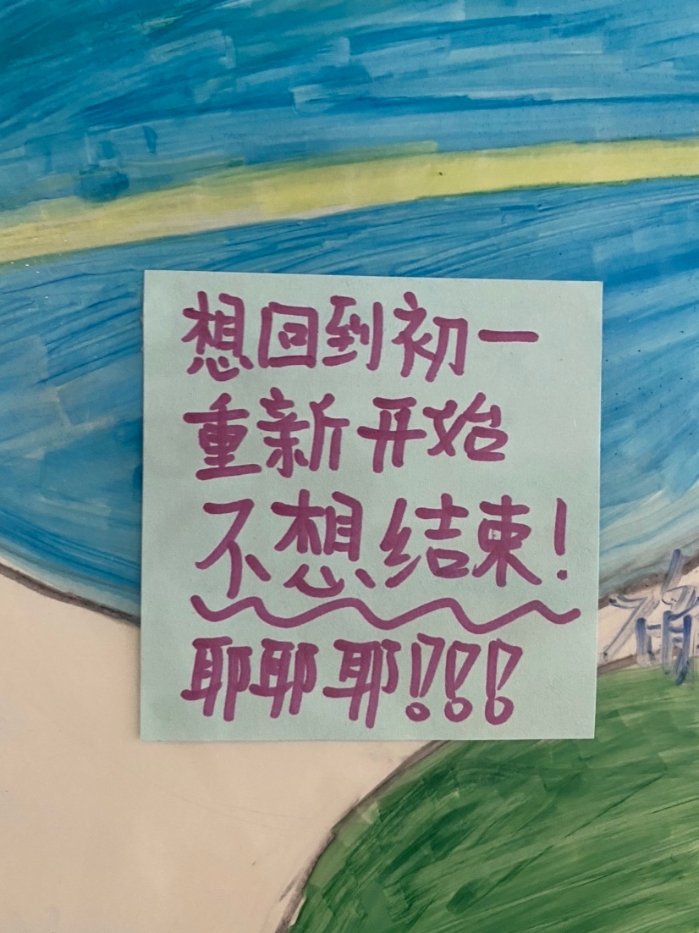 想回到初一
重新开始
不想结束!
耶耶耶!!!